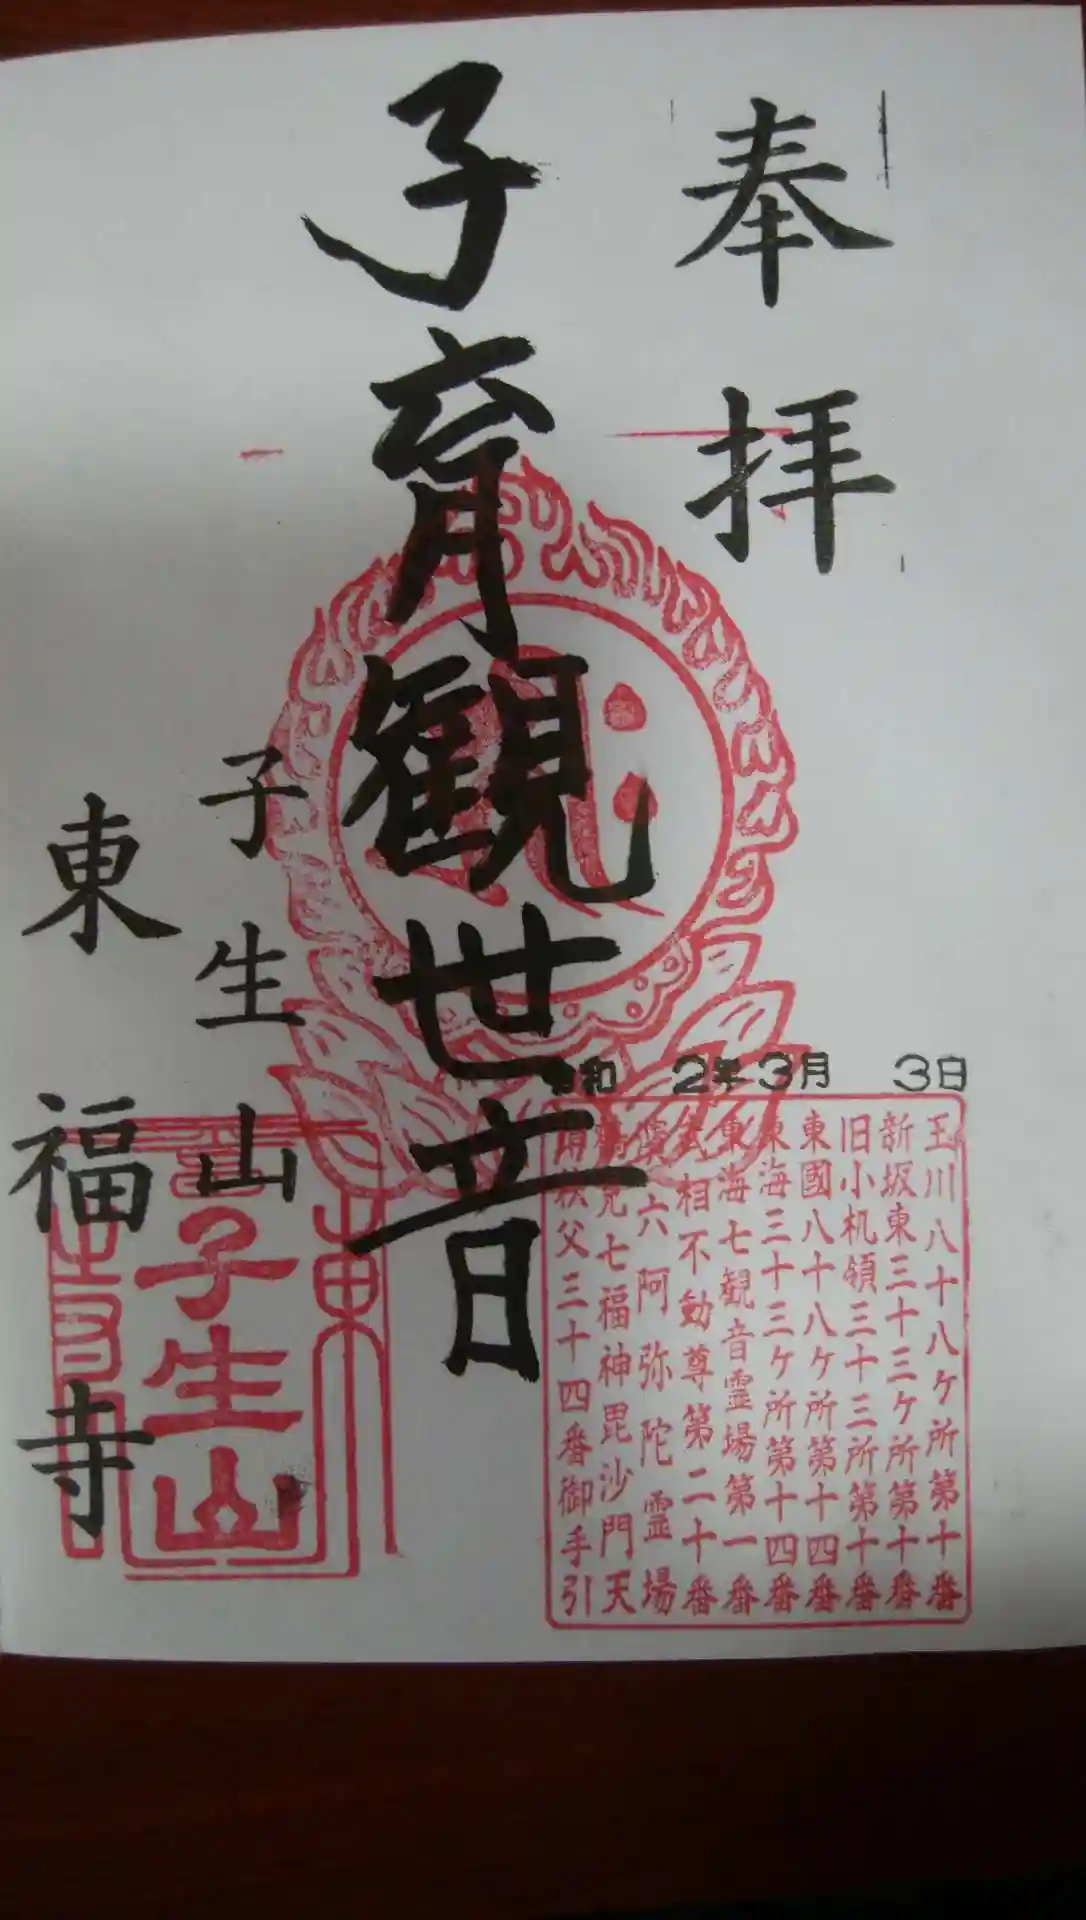 奉拝
子育観世音
子生山
東福寺
令和 2年3月 3日
玉川八十八ヶ所第十番
新坂東三十三ヶ所第十番
旧小机領三十三所第十番
東國八十八ヶ所第十四番
東海三十三ヶ所第十四番
東海七観音霊場第一番
武相不動尊第二十番
六阿弥陀霊場
鶴見七福神毘沙門天
秩父三十四番御手引
子生山